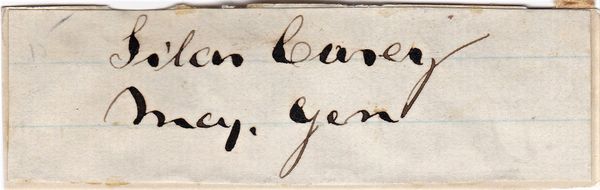 Silas Casey
Maj. Gen